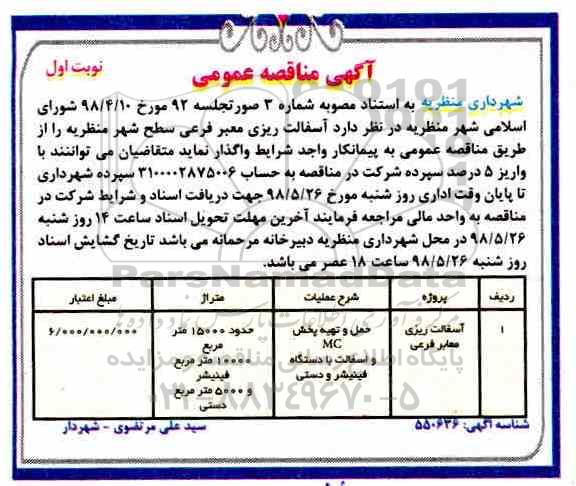 آگهی مناقصه عمومی
نوبت اول
شهرداری منظریه به استناد مصوبه شماره ۳ صورتجلسه ۹۲ مورخ ۹۸/۴/۱۰ شورای
اسلامی شهر منظریه در نظر دارد آسفالت ریزی معبر فرعی سطح شهر منظریه را از
طریق مناقصه عمومی به پیمانکار واجد شرایط واگذار نماید متقاضیان می توانند با
واریز ۵ درصد سپرده شرکت در مناقصه به حساب ۳۱۰۰۰۰۲۸۷۵۰۰۶ سپرده شهرداری
تا پایان وقت اداری روز شنبه مورخ ۹۸/۵/۲۶ جهت دریافت اسناد و شرایط شرکت در
مناقصه به واحد مالی مراجعه فرمایند آخرین مهلت تحویل اسناد ساعت ۱۴ روز شنبه
۹۸/۵/۲۶ در محل شهرداری منظریه دبیرخانه مرحمانه می باشد تاریخ گشایش اسناد
روز شنبه ۹۸/۵/۲۶ ساعت ۱۸ عصر می باشد.
ردیف پروژه شرح عملیات متراژ مبلغ اعتبار
۱ آسفالت ریزی حمل و تهیه پخش حدود ۱۵۰۰۰ متر ۶/۰۰۰/۰۰۰/۰۰۰
معابر فرعی MC مربع
و آسفالت با دستگاه ۱۰۰۰۰ متر مربع
فینیشر و دستی فینیشر
و ۵۰۰۰ متر مربع
دستی
شناسه آگهی: ۵۵۰۶۳۶ سید علی مرتضوی - شهردار
ParsNamadData
پایگاه اطلاع رسانی مناقصه و مزایده
۰۲۱-۸۸۳۴۹۶۷۰-۵